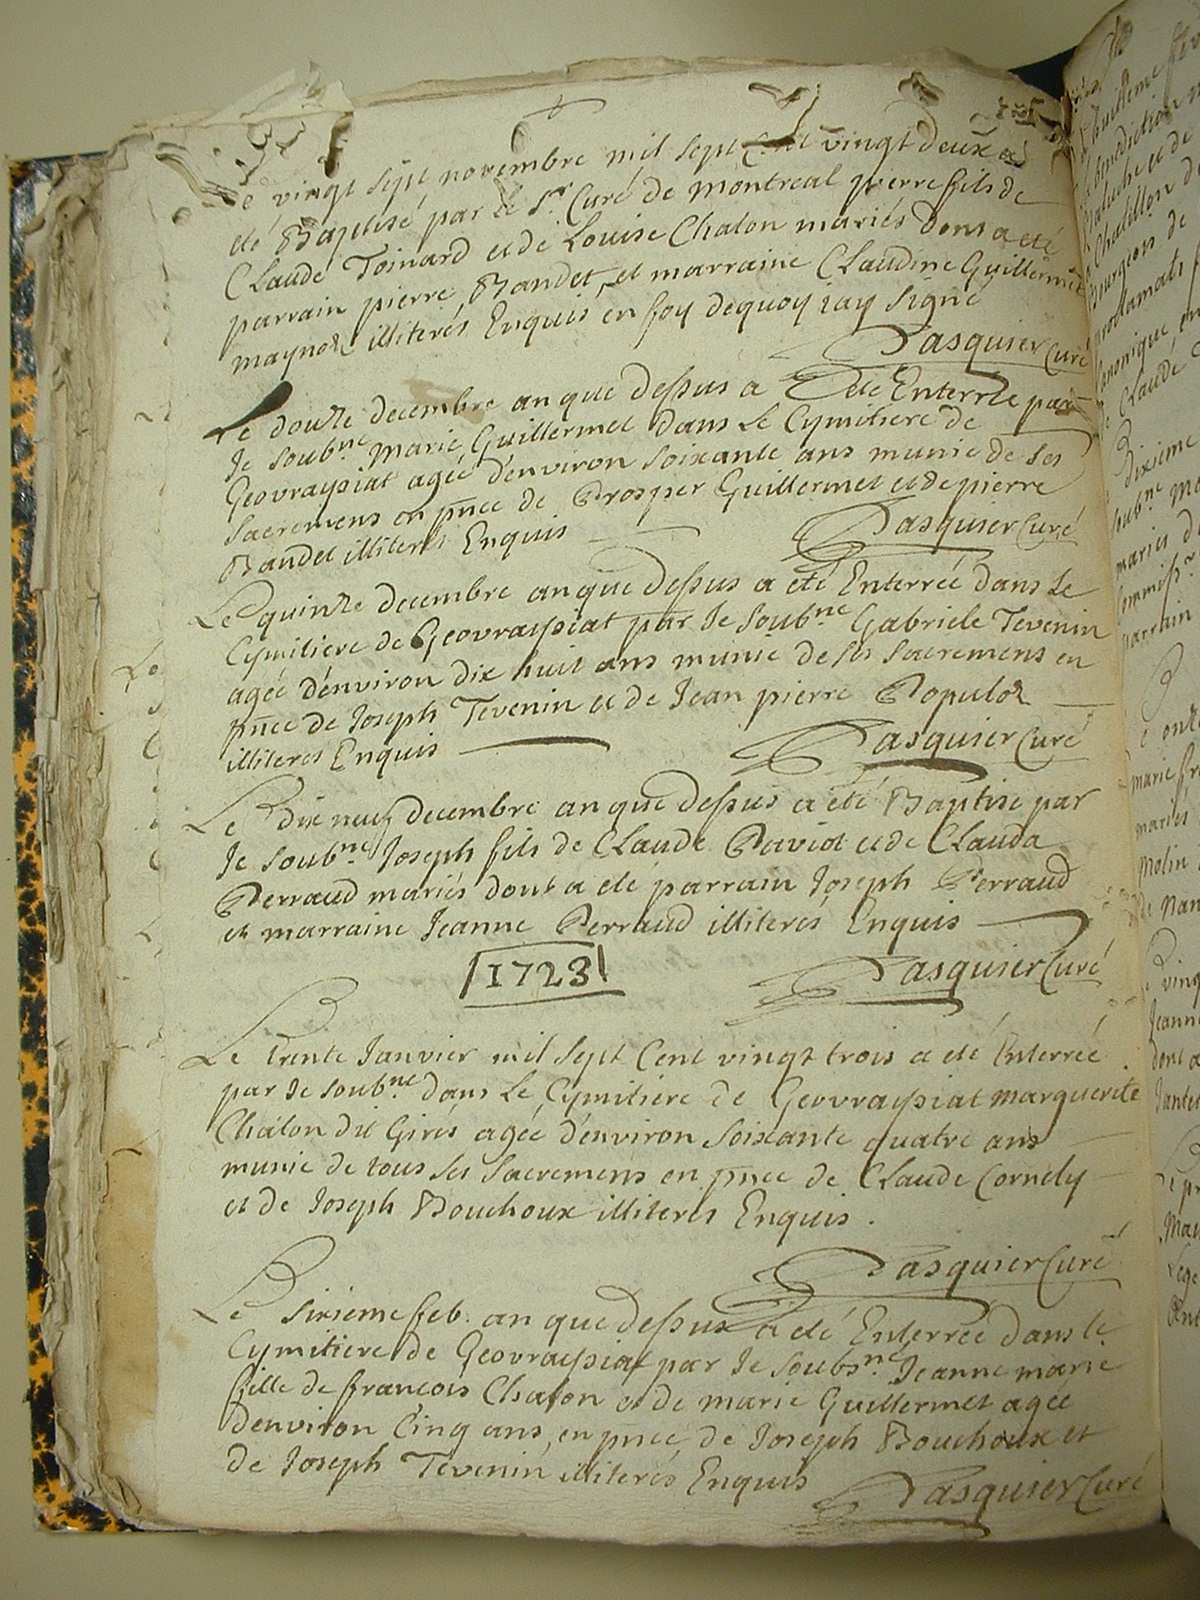 Le vingt sept novembre mil sept Cent vingt deux a
eté Baptisé par le Sr. Curé de montreal pierre fils de
Claude Toinard et de Louise Chalon mariés dont a eté
parrain pierre Bandet, et marraine Claudine Guillermet
illiterés Enquis en foy dequoy jay signé
Pasquier Curé
Le douze decembre an que dessus a eté Enterrée par
Je soubné. marie Guillermet dans Le Cymitiere de
Geovraysiat agée d'environ soixante ans munie de ses
sacremens en pnce de Prosper Guillermet et de pierre
Bandet illiterés Enquis
Pasquier Curé
Le quinze decembre an que dessus a eté Enterrée dans Le
Cymitiere de Geovraysiat par Je soubné Gabriele Tevenin
agée d'environ dix huit ans munie de ses sacremens en
pnce de Joseph Tevenin et de Jean pierre Populoz
illiteres Enquis
Pasquier Curé
Le dix neuf decembre an que dessus a eté Baptise par
Je soubné. Joseph fils de Claude Paviot et de Clauda
Perraud mariés dont a eté parrain Joseph Perraud
et marraine Jeanne Perraud illiterés Enquis
1723
Pasquier Curé
Le trente Janvier mil sept Cent vingt trois a eté Enterrée
par Je soubné. dans Le Cymitiere de Geovraysiat marguerite
Chalon dit Girés agée d'environ soixante quatre ans
munie de tous ses sacremens en pnce de Claude Cornely
et de Joseph Bouchoux illiteres Enquis.
Pasquier Curé
Le sixieme feb. an que dessus a eté Enterrée dans le
Cymitiere de Geovraysiat par Je soubsné Jeanne marie
fille de francois Chalon et de marie Guillermet agée
d'environ Cinq ans, en pnce de Joseph Bouchoux et
de Joseph Tevenin illiterés Enquis
Pasquier Curé